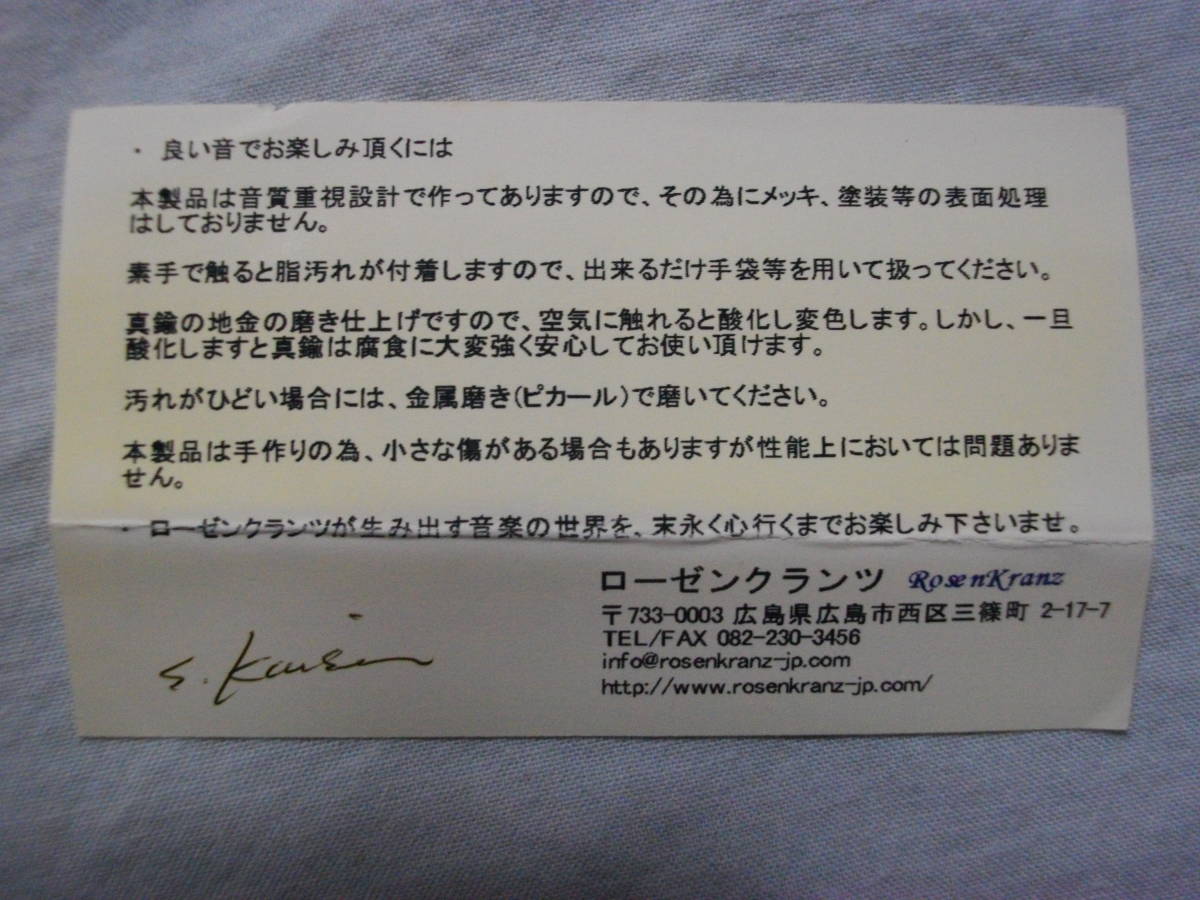 ・ 良い音でお楽しみ頂くには
本製品は音質重視設計で作ってありますので、その為にメッキ、塗装等の表面処理
はしておりません。
素手で触ると脂汚れが付着しますので、出来るだけ手袋等を用いて扱ってください。
真鍮の地金の磨き仕上げですので、空気に触れると酸化し変色します。しかし、一旦
酸化しますと真鍮は腐食に大変強く安心してお使い頂けます。
汚れがひどい場合には、金属磨き(ピカール)で磨いてください。
本製品は手作りの為、小さな傷がある場合もありますが性能上においては問題ありま
せん。
・ ローゼンクランツが生み出す音楽の世界を、末永く心行くまでお楽しみ下さいませ。
ローゼンクランツ RosenKranz
〒733-0003 広島県広島市西区三篠町 2-17-7
TEL/FAX 082-230-3456
info@rosenkranz-jp.com
http://www.rosenkranz-jp.com/